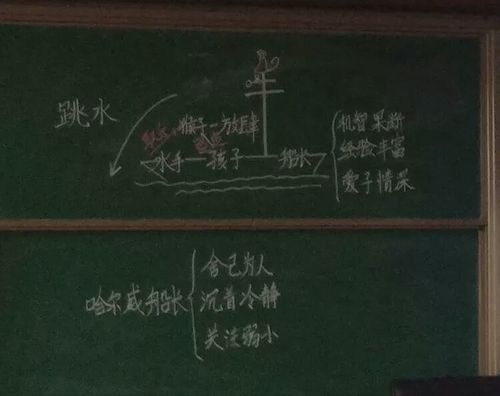 跳水
猴子—放肆
水手—孩子—船长
机智果断
经验丰富
爱子情深
哈尔威船长
舍己为人
沉着冷静
关注弱小